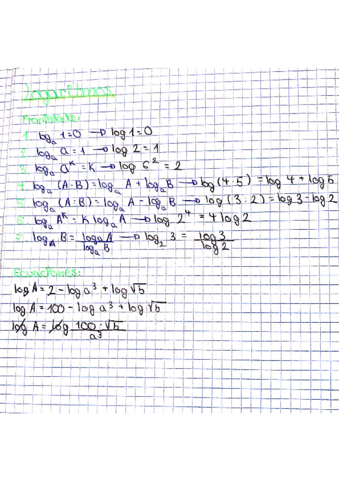 logaritmos
Propiedades:
1. logₐ 1=0 → log 1=0
2. logₐ a = 1 → log 2 = 1
3. logₐ aᴷ = K → log 6² = 2
4. logₐ (A·B) = logₐ A + logₐ B → log (4·5) = log 4 + log 5
5. logₐ (A:B) = logₐ A - logₐ B → log (3:2) = log 3 - log 2
6. logₐ Aᴷ = K logₐ A → log 2⁴ = 4 log 2
7. log_A B = logₐ A / logₐ B → log₂ 3 = log 3 / log 2
Ecuaciones:
log A = 2 - log a³ + log √5
log A = 100 - log a³ + log √5
log A = log 100·√5 / a³